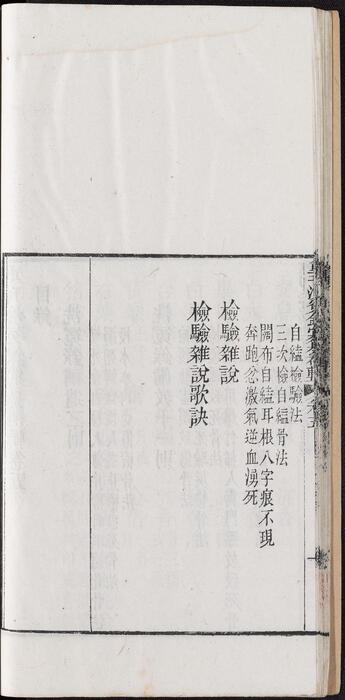 自縊檢驗法
三次檢自縊骨法
闊布自縊耳根八字痕不現
奔跑忿激氣逆血湧死
檢驗雜說
檢驗雜說歌訣